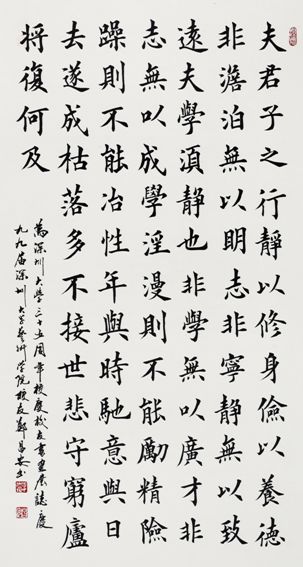 夫君子之行靜以修身儉以養德
非澹泊無以明志非寧靜無以致
遠夫學湏靜也非學無以廣才非
志無以成學淫漫則不能勵精險
躁則不能冶性年與時馳意與日
去遂成枯落多不接世悲守窮廬
將復何及
為深圳大學三十五周年校慶校友書畫展誌慶
九九届深圳大学藝術学院校友鄭安书